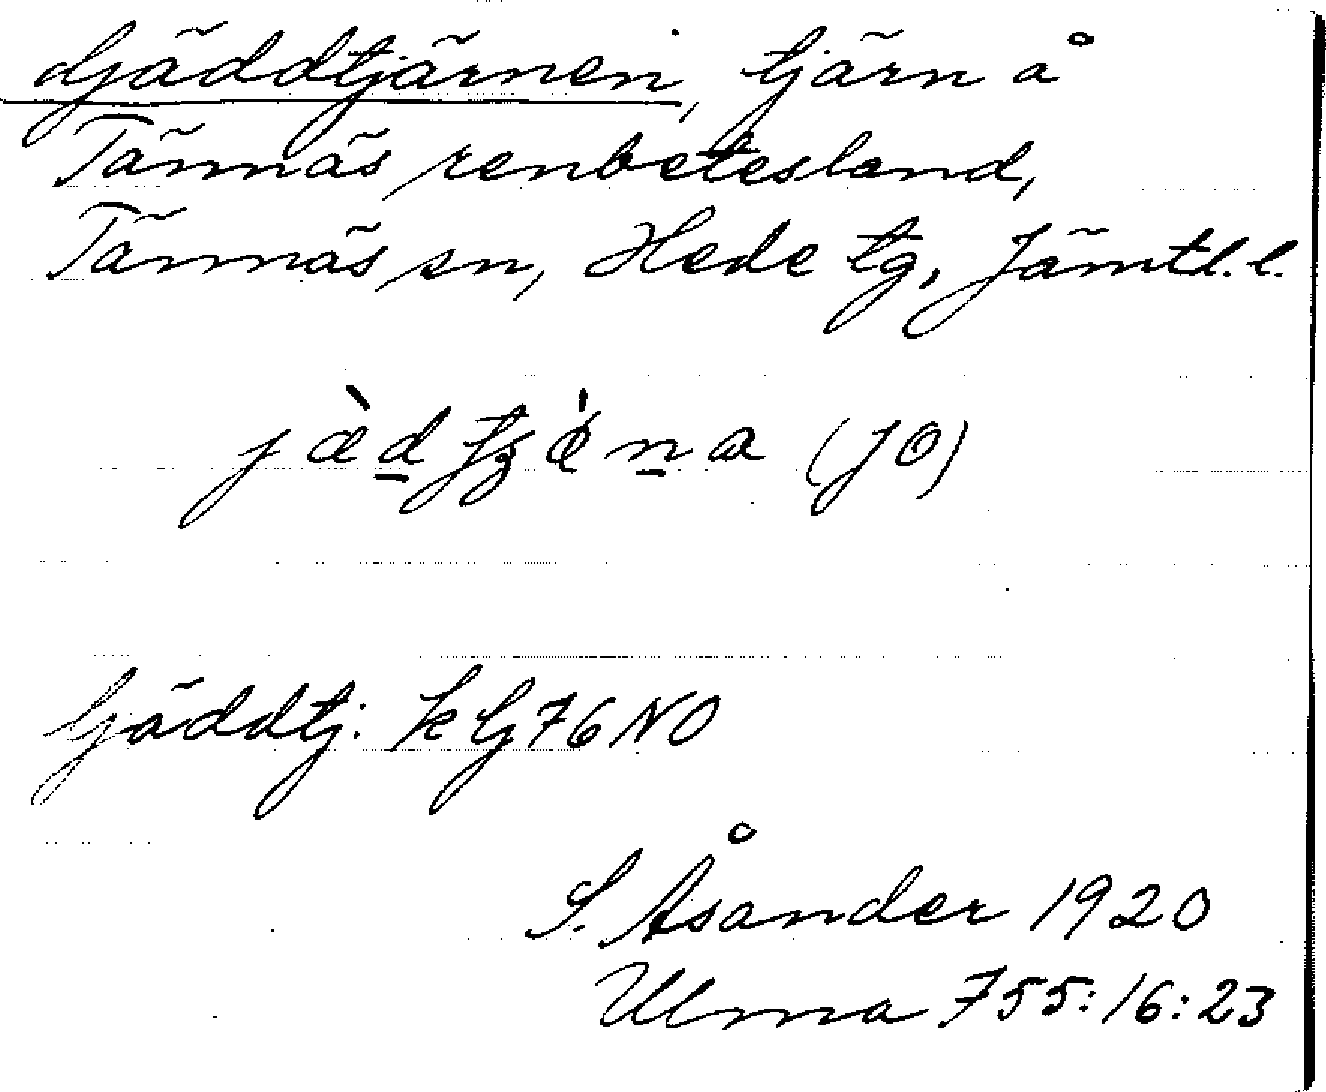 Gäddtjärnen, tjärn å
Tännäs renbetesland,
Tännäs sn, Hede tg, Jämtl. l.
(JO)
Gäddtj: k G76NO
S. Åsander 1920
Ulma 755:16:23